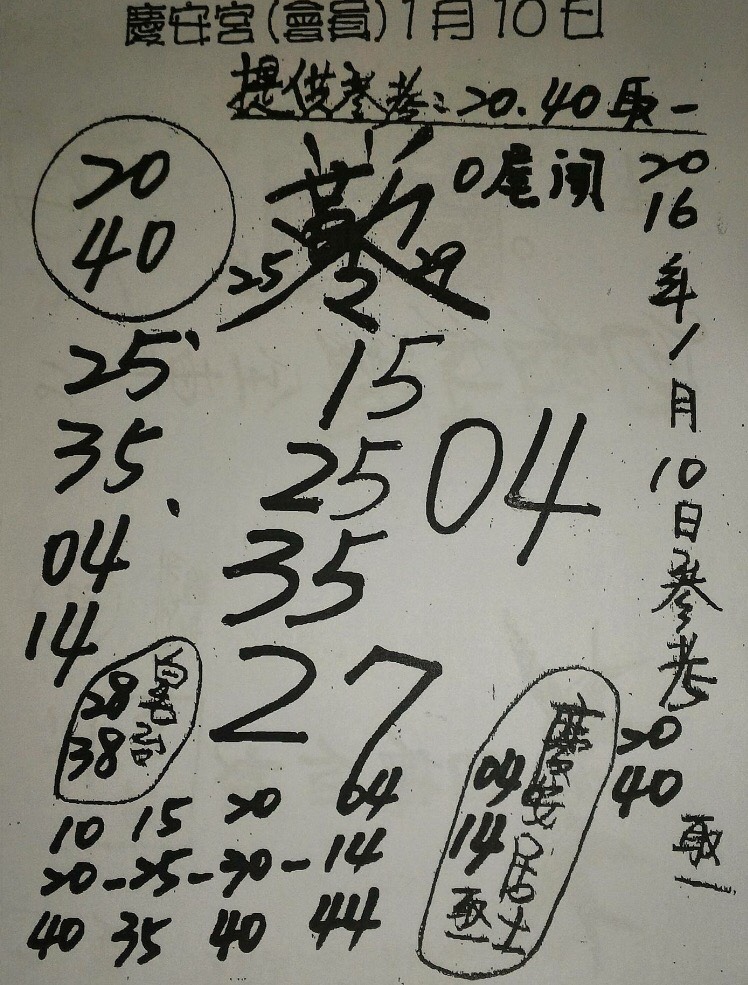 慶安宮(會員)1月10日
提供參考:20.40取一
20
40
0尾闖
25
29
2
2016年1月10日參考
20
40
取一
25
35
04
14
15
25
04
35
27
28
38
慶安居士
04
14
取一
10 15 20 04
20-25-30-14
40 35 40 44